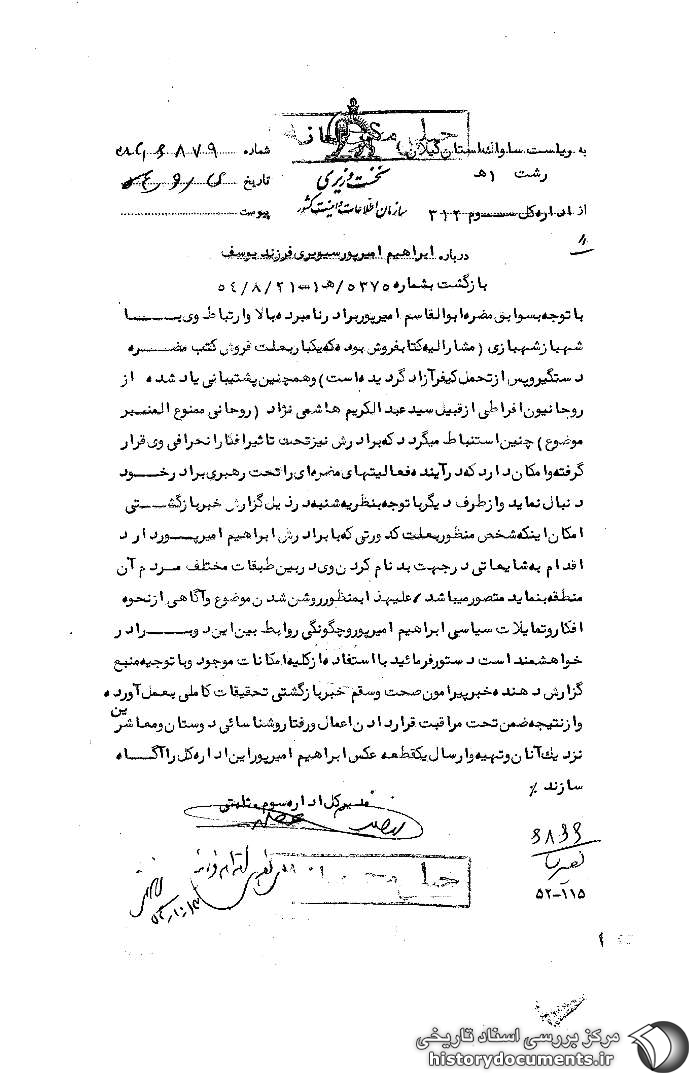 به ریاست ساواک استان گیلان
رشت ۱هـ
از اداره کل سوم ۳۱۲
نخست وزیری
سازمان اطلاعات و امنیت کشور
شماره
تاریخ
پیوست
درباره ابراهیم امیرپور سیویری فرزند یوسف
بازگشت بشماره ۵۳۷۵/هـ۱-۵۴/۸/۲۱
با توجه بسوابق مضره ابوالقاسم امیرپور برادر نامبرده بالا و ارتباط وی با
شهباز شهبازی (مشارالیه کتابفروش بوده که یکبار بعلت فروش کتب مضره
دستگیر و پس از تحمل کیفر آزاد گردیده است) و همچنین پشتیبانی یاد شده از
روحانیون افراطی از قبیل سید عبدالکریم هاشمی نژاد (روحانی ممنوع المنبر
موضوع) چنین استنباط میگردد که برادرش نیز تحت تاثیر افکار انحرافی وی قرار
گرفته و امکان دارد که در آینده فعالیتهای مضره ای را تحت رهبری برادر خود
دنبال نماید و از طرف دیگر با توجه بنظریه شنبه در ذیل گزارش خبر بازگشتی
امکان اینکه شخص منظور بعلت کدورتی که با برادرش ابراهیم امیرپور دارد
اقدام به شایعاتی در جهت بدنام کردن وی در بین طبقات مختلف مردم آن
منطقه بنماید متصور میباشد/علیهذا بمنظور روشن شدن موضوع و آگاهی از نحوه
افکار و تمایلات سیاسی ابراهیم امیرپور و چگونگی روابط بین این دو برادر
خواهشمند است دستور فرمائید با استفاده از کلیه امکانات موجود و با توجیه منبع
گزارش دهنده خبر پیرامون صحت و سقم خبر بازگشتی تحقیقات کاملی بعمل آورده
و از نتیجه ضمن تحت مراقبت قرار دادن اعمال و رفتار و شناسائی دوستان و معاشرین
نزدیک آنان و تهیه و ارسال یکقطعه عکس ابراهیم امیرپور این اداره کل را آگاه
سازند ٪
مدیرکل اداره سوم ثابتی
۵۲-۱۱۵
مرکز بررسی اسناد تاریخی
historydocuments.ir